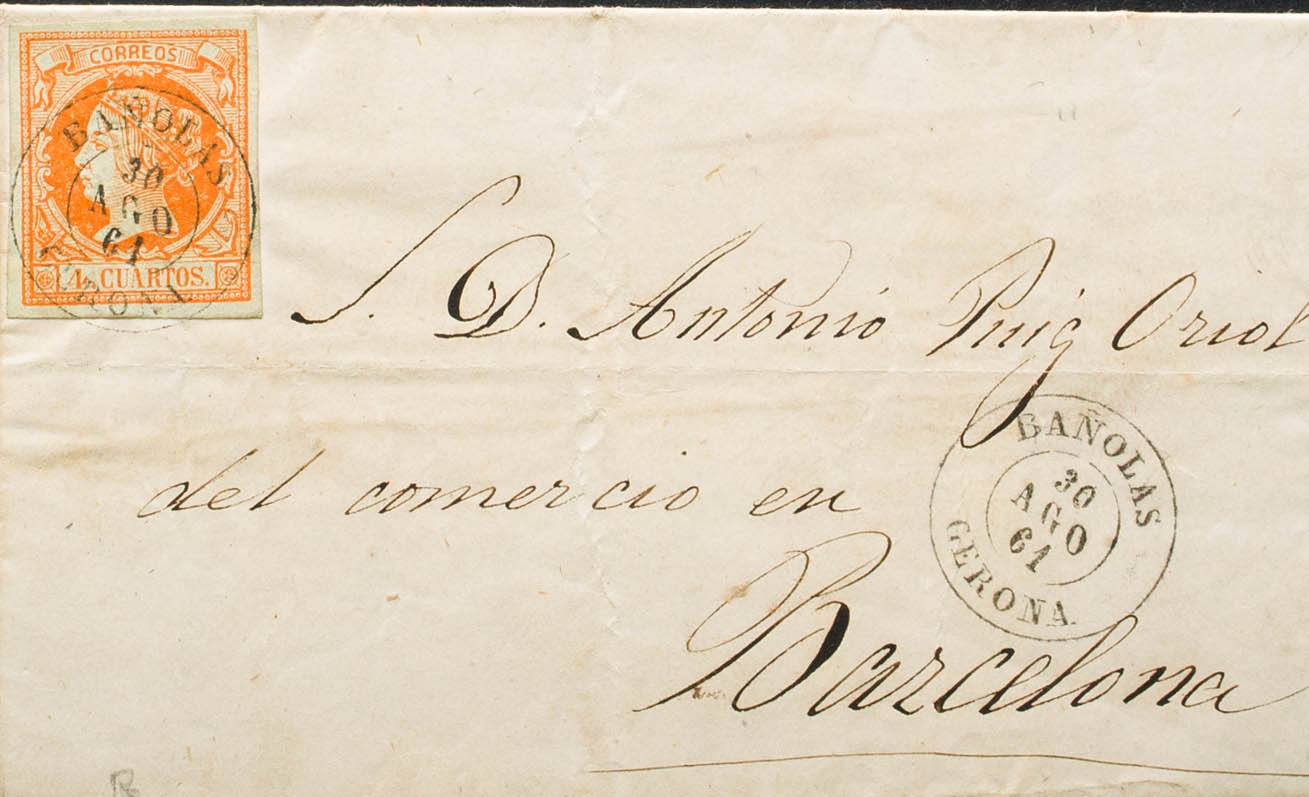 CORREOS
BAÑOLAS
30
AGO
61
GERONA
4 CUARTOS.
S. D. Antonio Puig Oriol
del comercio en
BAÑOLAS
30
AGO
61
GERONA
Barcelona